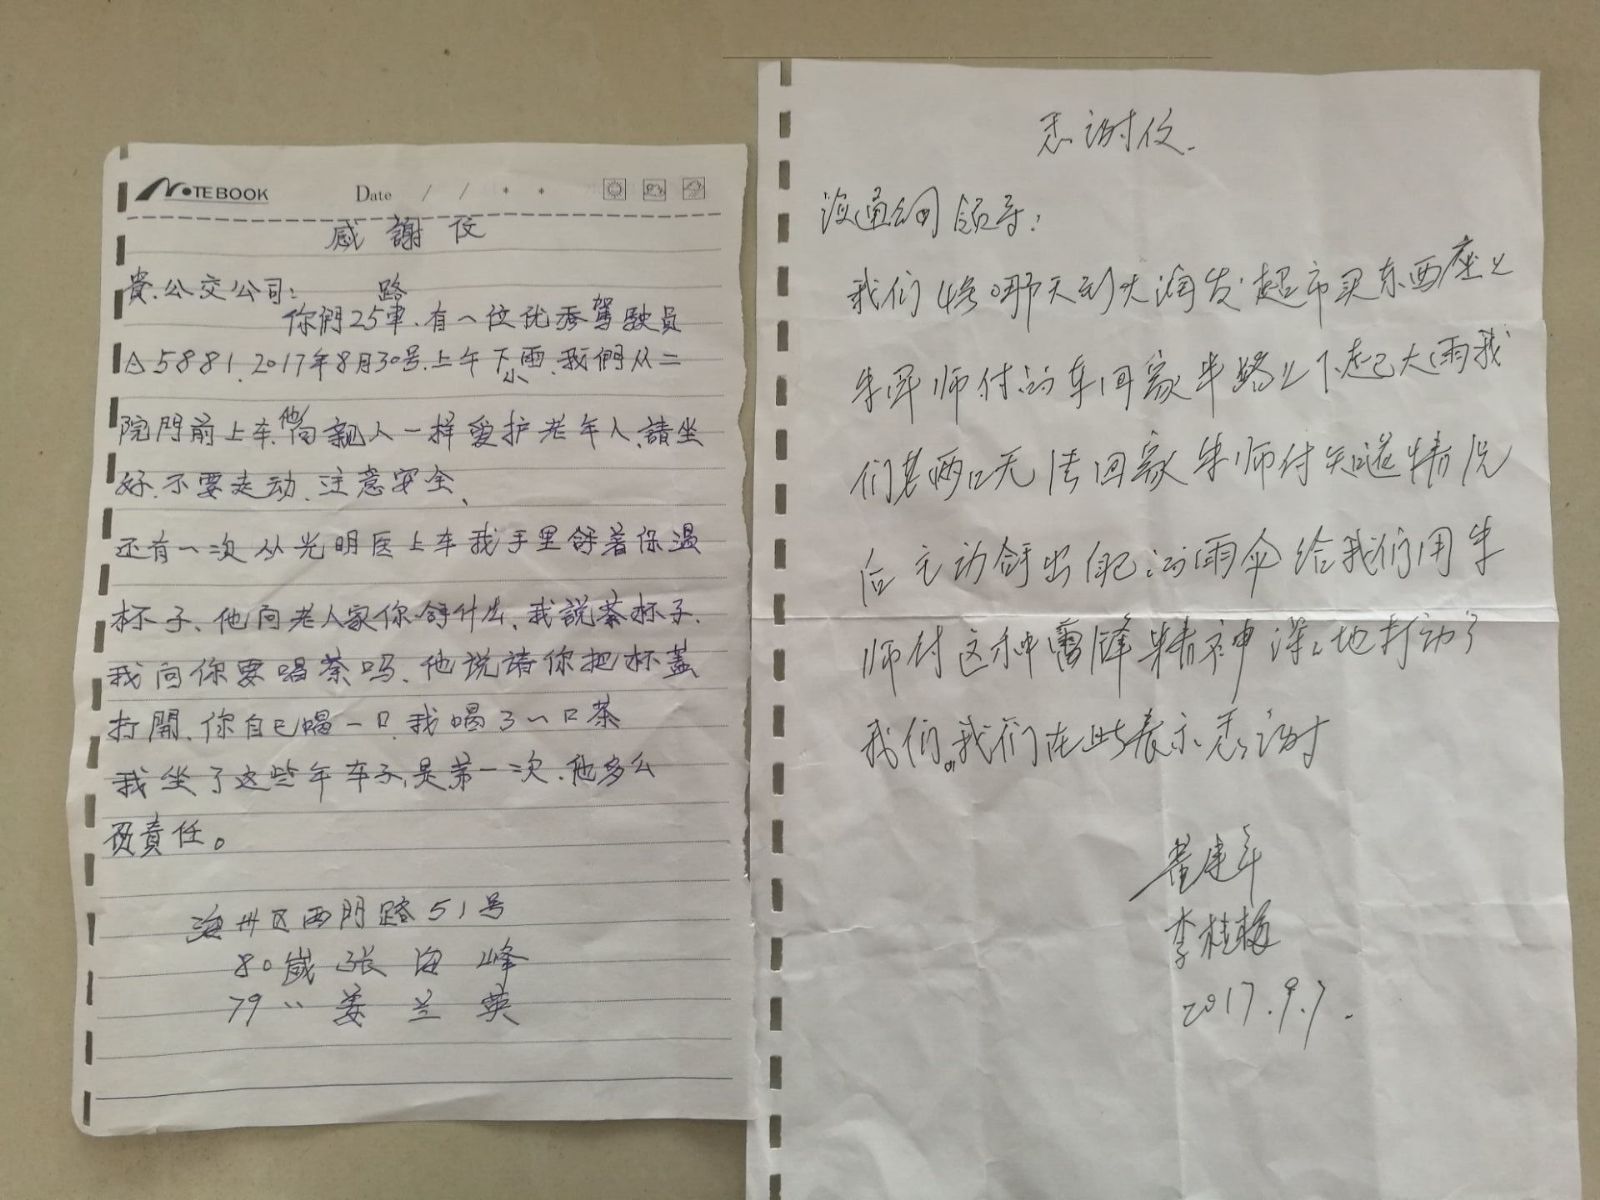 NOTEBOOK Date / /
感謝信
貴公交公司：
你們25路車、有一位优秀駕駛员
A5881.2017年8月30号上午下小雨.我們从二
院門前上车、他向親人一样爱护老年人、請坐
好、不要走动、注意安全、
还有一次从光明医上车我手里拿着保温
杯子、他问老人家你拿什么、我説茶杯子.
我问你要喝茶吗、他说请你把杯蓋
打開、你自己喝一口、我喝了一口茶
我坐了这些年车子、是第一次、他多么
负責任。
海州区西門路51号
80嵗 张海峰
79〃 姜兰英
感谢信.
海通公司领导：
我们4号那天到大润发超市买东西座上
朱师付的车回家半路上下起大雨我
们老两口无法回家朱师付知道情况
后主动拿出自己的雨伞给我们用朱
师付这种雷锋精神深深地打动了
我们。我们在此表示感谢
董建年
李桂梅
2017.9.7.